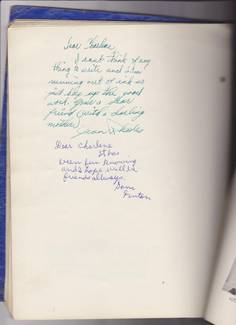 Dear Charlene
I cant think of any
thing to write and I'm
running out of ink so
just key up the good
work. You're a dear
friend (with a darling
mother)
Dear Charlene
It has
been fun knowing
and I hope we'll be
friends always.
Sam
Fenton